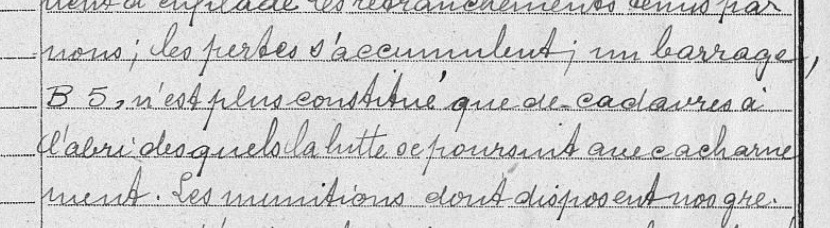 d'enfilade les retranchements tenus par
nous ; les pertes s'accumulent ; un barrage,
B 5, n'est plus constitué que de cadavres à
l'abri desquels la lutte se poursuit avec acharne
ment. Les munitions dont disposent nos gre-